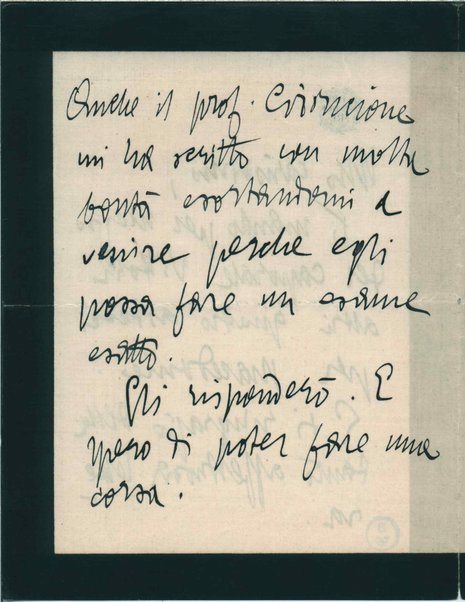 Anche il prof. Cirincione
mi ha scritto con molta
bontà esortandomi a
venire perche egli
possa fare un esame
esatto.
Gli risponderò. E
spero di poter fare una
corsa.